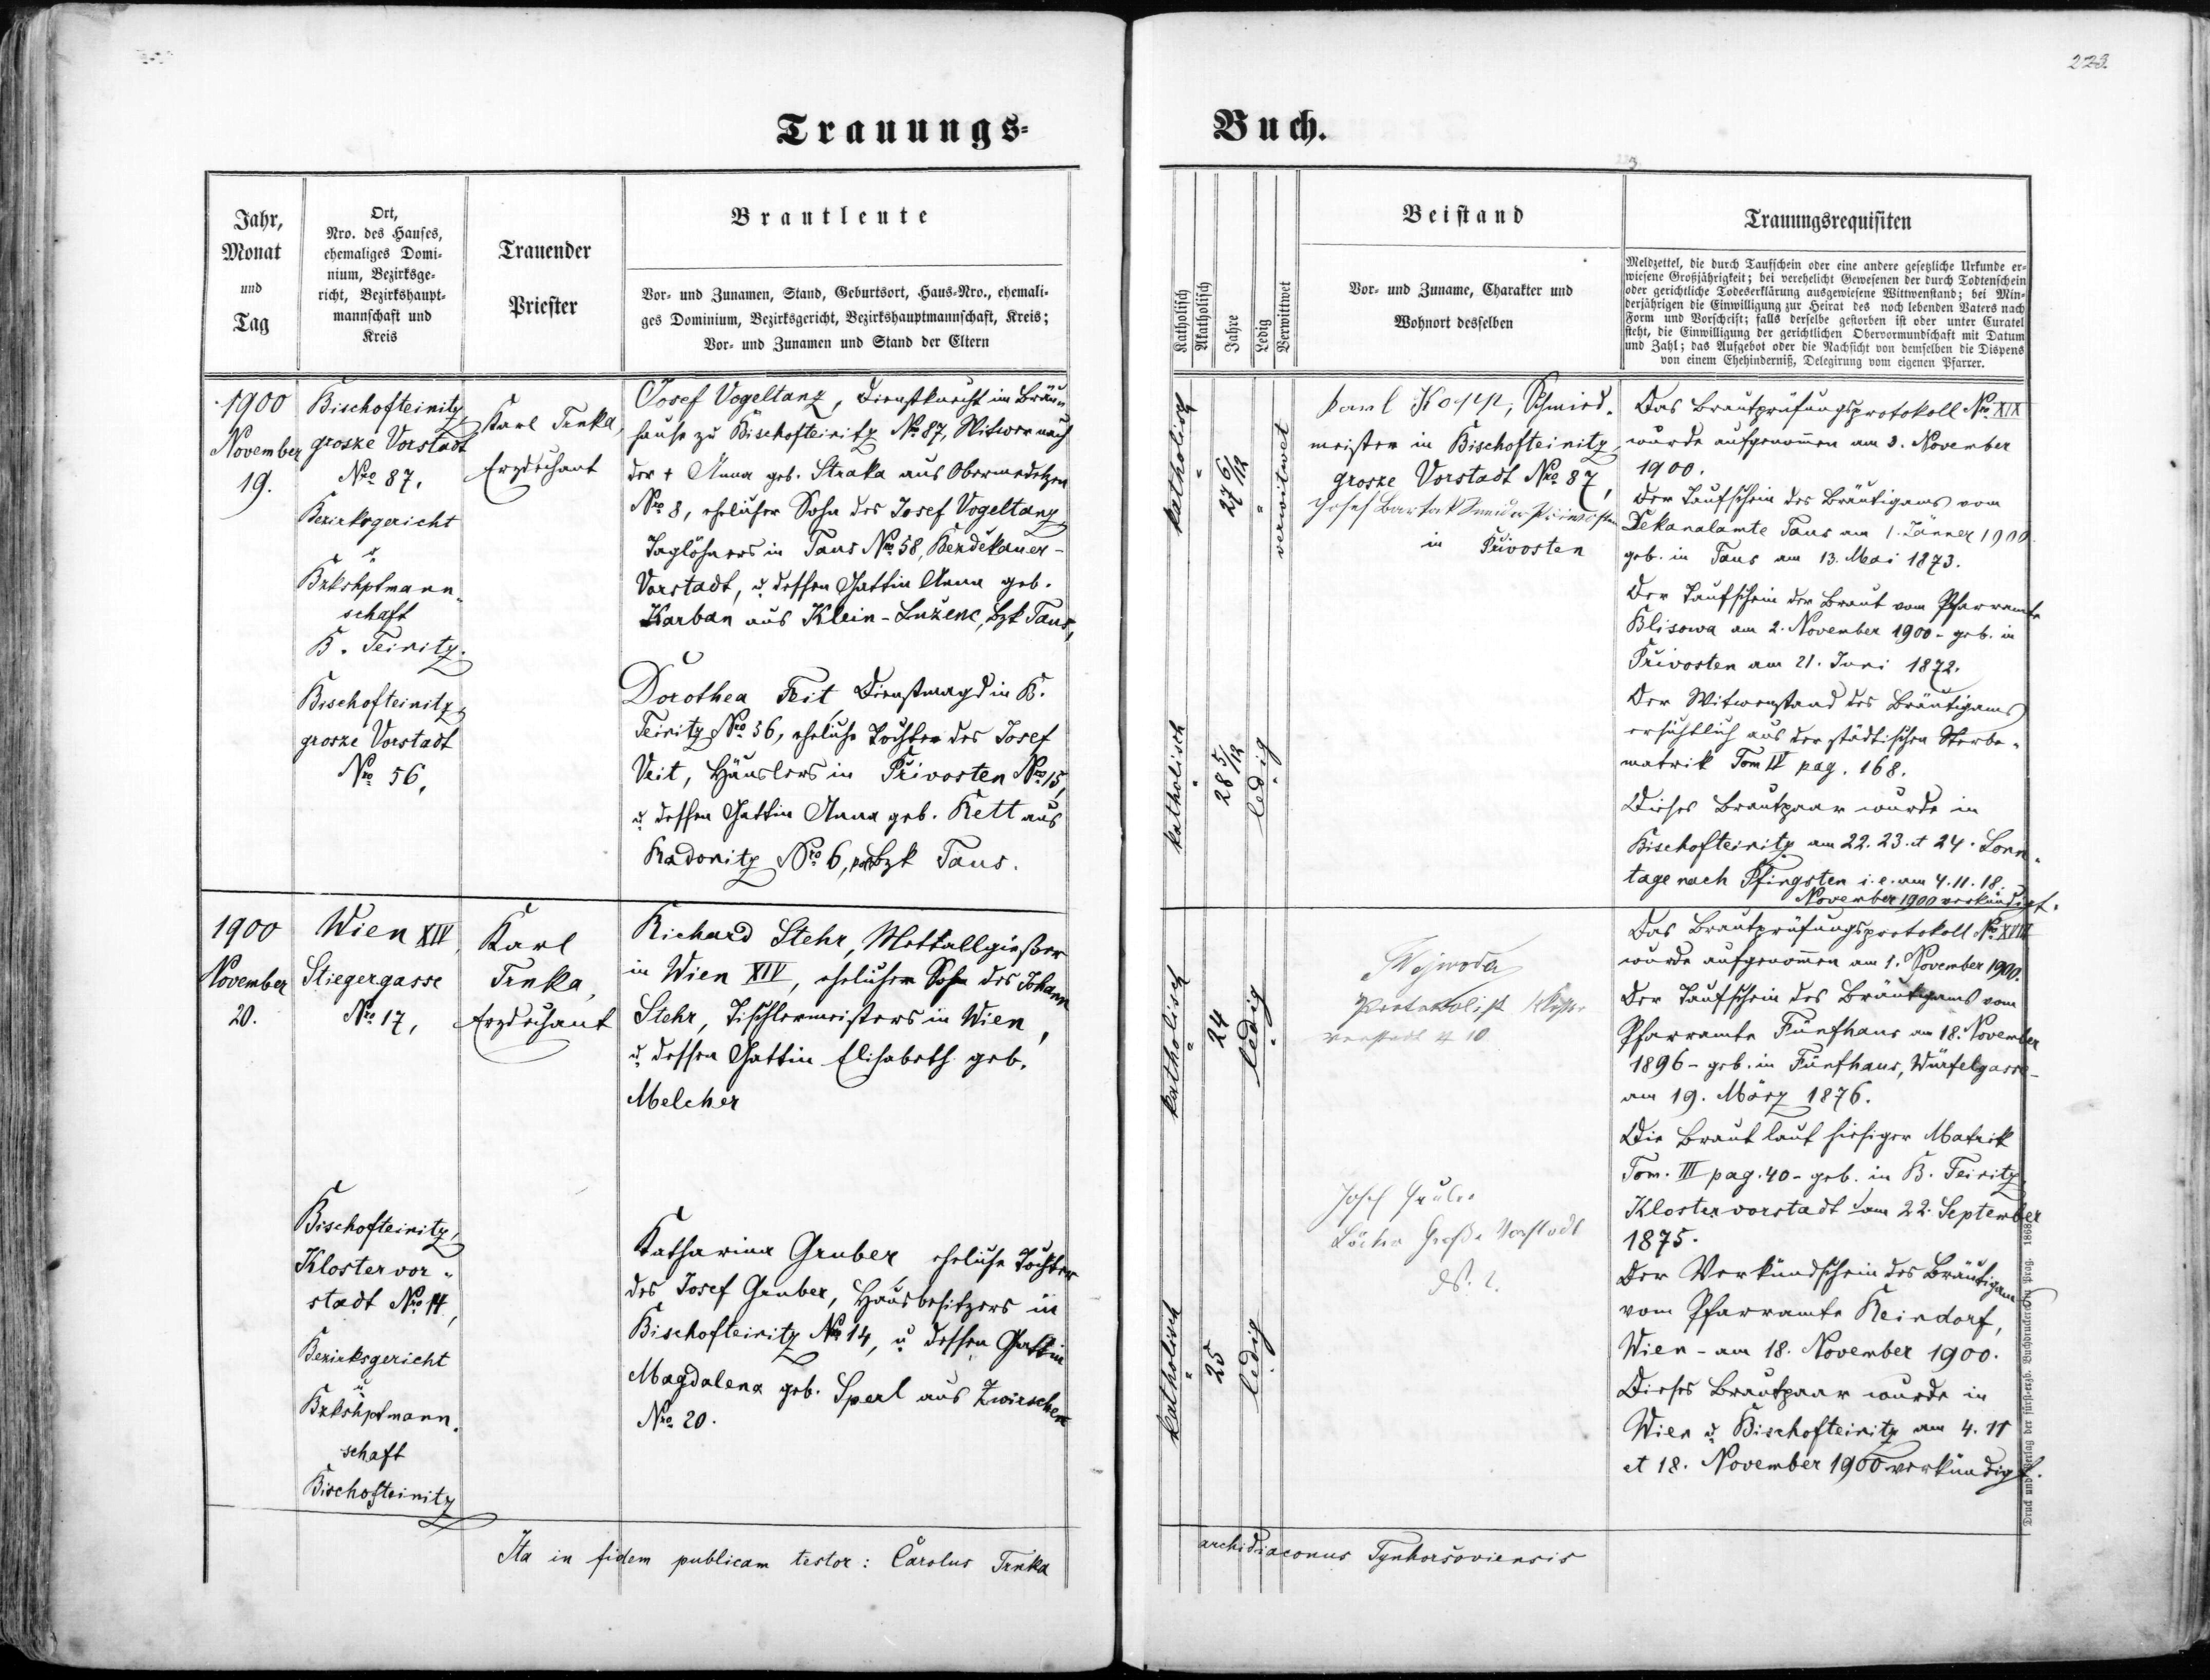 223.
Trauungs-
Buch.
Jahr,
Monat
und
Tag
Ort,
Nro. des Hauses,
ehemaliges Domi-
nium, Bezirksge-
richt, Bezirkshaupt-
mannschaft und
Kreis
Trauender
Priester
Brautleute
Vor- und Zunamen, Stand, Geburtsort, Haus-Nro., ehemali-
ges Dominium, Bezirksgericht, Bezirkshauptmannschaft, Kreis;
Vor- und Zunamen und Stand der Eltern
Katholisch
Akatholisch
Jahre
Ledig
Verwittwet
Beistand
Vor- und Zuname, Charakter und
Wohnort desselben
Trauungsrequisiten
Meldzettel, die durch Taufschein oder eine andere gesetzliche Urkunde er-
wiesene Großjährigkeit; bei verehelicht Gewesenen der durch Todtenschein
oder gerichtliche Todeserklärung ausgewiesene Wittwenstand; bei Min-
derjährigen die Einwilligung zur Heirat des noch lebenden Vaters nach
Form und Vorschrift; falls derselbe gestorben ist oder unter Curatel
steht, die Einwilligung der gerichtlichen Obervormundschaft mit Datum
und Zahl; das Aufgebot oder die Nachsicht von demselben die Dispens
von einem Ehehinderniß, Delegirung vom eigenen Pfarrer.
1900
November
19.
Bischofteinitz,
grosze Vorstadt
Nro 87,
Bezirksgericht
u
Bzkshptmann-
schaft
B. Teinitz.
Bischofteinitz,
grosze Vorstadt
Nro 56,
Karl Trnka,
Erzdechant
Josef Vogeltanz, Dienstknecht im Bräu-
hause zu Bischofteinitz Nro 87, Witwer nach
der + Anna geb. Straka aus Obermedelzen
Nro 8, ehelicher Sohn des Josef Vogeltanz
Taglöhners in Taus Nro 58, Bezdekauer-
Vorstadt, u dessen Gattin Anna geb.
Karban aus Klein-Luženc, Bzk Taus,
Dorothea Veit Dienstmagd in B.
Teinitz Nro 56, eheliche Tochter des Josef
Veit, Häuslers in Přivosten Nro 15,
u dessen Gattin Anna geb. Rett aus
Radonitz Nro 6, Bzk Taus.
katholisch
27 6/12
verwitwet
katholisch
28 5/12
ledig
Karl Kopp, Schmied-
meister in Bischofteinitz,
grosze Vorstadt Nro 87,
Josef Bartak
in Přivosten
Das Brautprüfungsprotokoll Nro XIX
wurde aufgenommen am 3. November
1900.
Der Taufschein des Bräutigams vom
Dekanalamte Taus am 1. Jänner 1900
geb. in Taus am 13. Mai 1873.
Der Taufschein der Braut vom Pfarramte
Blisowa am 2. November 1900 - geb. in
Přivosten am 21. Juni 1872.
Der Witwerstand des Bräutigams
ersichtlich aus der städtischen Sterbe-
matrik Tom IV pag. 168.
Dieses Brautpaar wurde in
Bischofteinitz am 22. 23. et 24. Sonn-
tage nach Pfingsten i. e. am 4. 11. 18.
November 1900 verkündigt.
1900
November
20.
Wien XIV,
Stiegergasse
Nro 17,
Karl
Trnka,
Erzdechant
Richard Stehr, Mettallgießer
in Wien XIV, ehelicher Sohn des Johann
Stehr, Tischlermeisters in Wien,
u dessen Gattin Elisabeth geb.
Melcher
Bischofteinitz,
Klostervor-
stadt Nro 14,
Bezirksgericht
u
Bzkshptmann-
schaft
Bischofteinitz
Katharina Gruber eheliche Tochter
des Josef Gruber, Hausbesitzers in
Bischofteinitz Nro 14, u dessen Gattin
Magdalena geb. Sperl aus Zwirschen
Nro 20.
katholisch
24
ledig
katholisch
25
ledig
Wojwoda
Protokolist
vorstadt 10
Josef
Große Vorstadt
Das Brautprüfungsprotokoll Nro XVIII
wurde aufgenommen am 1. November 1900.
Der Taufschein des Bräutigams vom
Pfarramte Fünfhaus am 18. November
1896 - geb. in Fünfhaus, Würfelgasse -
am 19. März 1876.
Die Braut laut hiesiger Matrik
Tom. III pag. 40 - geb. in B. Teinitz,
Klostervorstadt am 22. September
1875.
Der Verkündschein des Bräutigams
vom Pfarramte Reindorf,
Wien - am 18. November 1900.
Dieses Brautpaar wurde in
Wien u. Bischofteinitz am 4. 11
et 18. November 1900 verkündigt.
Ita in fidem publicam testor: Carolus Trnka
archidiaconus Tynhoršoviensis
Druck und Verlag der fürst-erzb. Buchdruckerei in Prag. 1868.